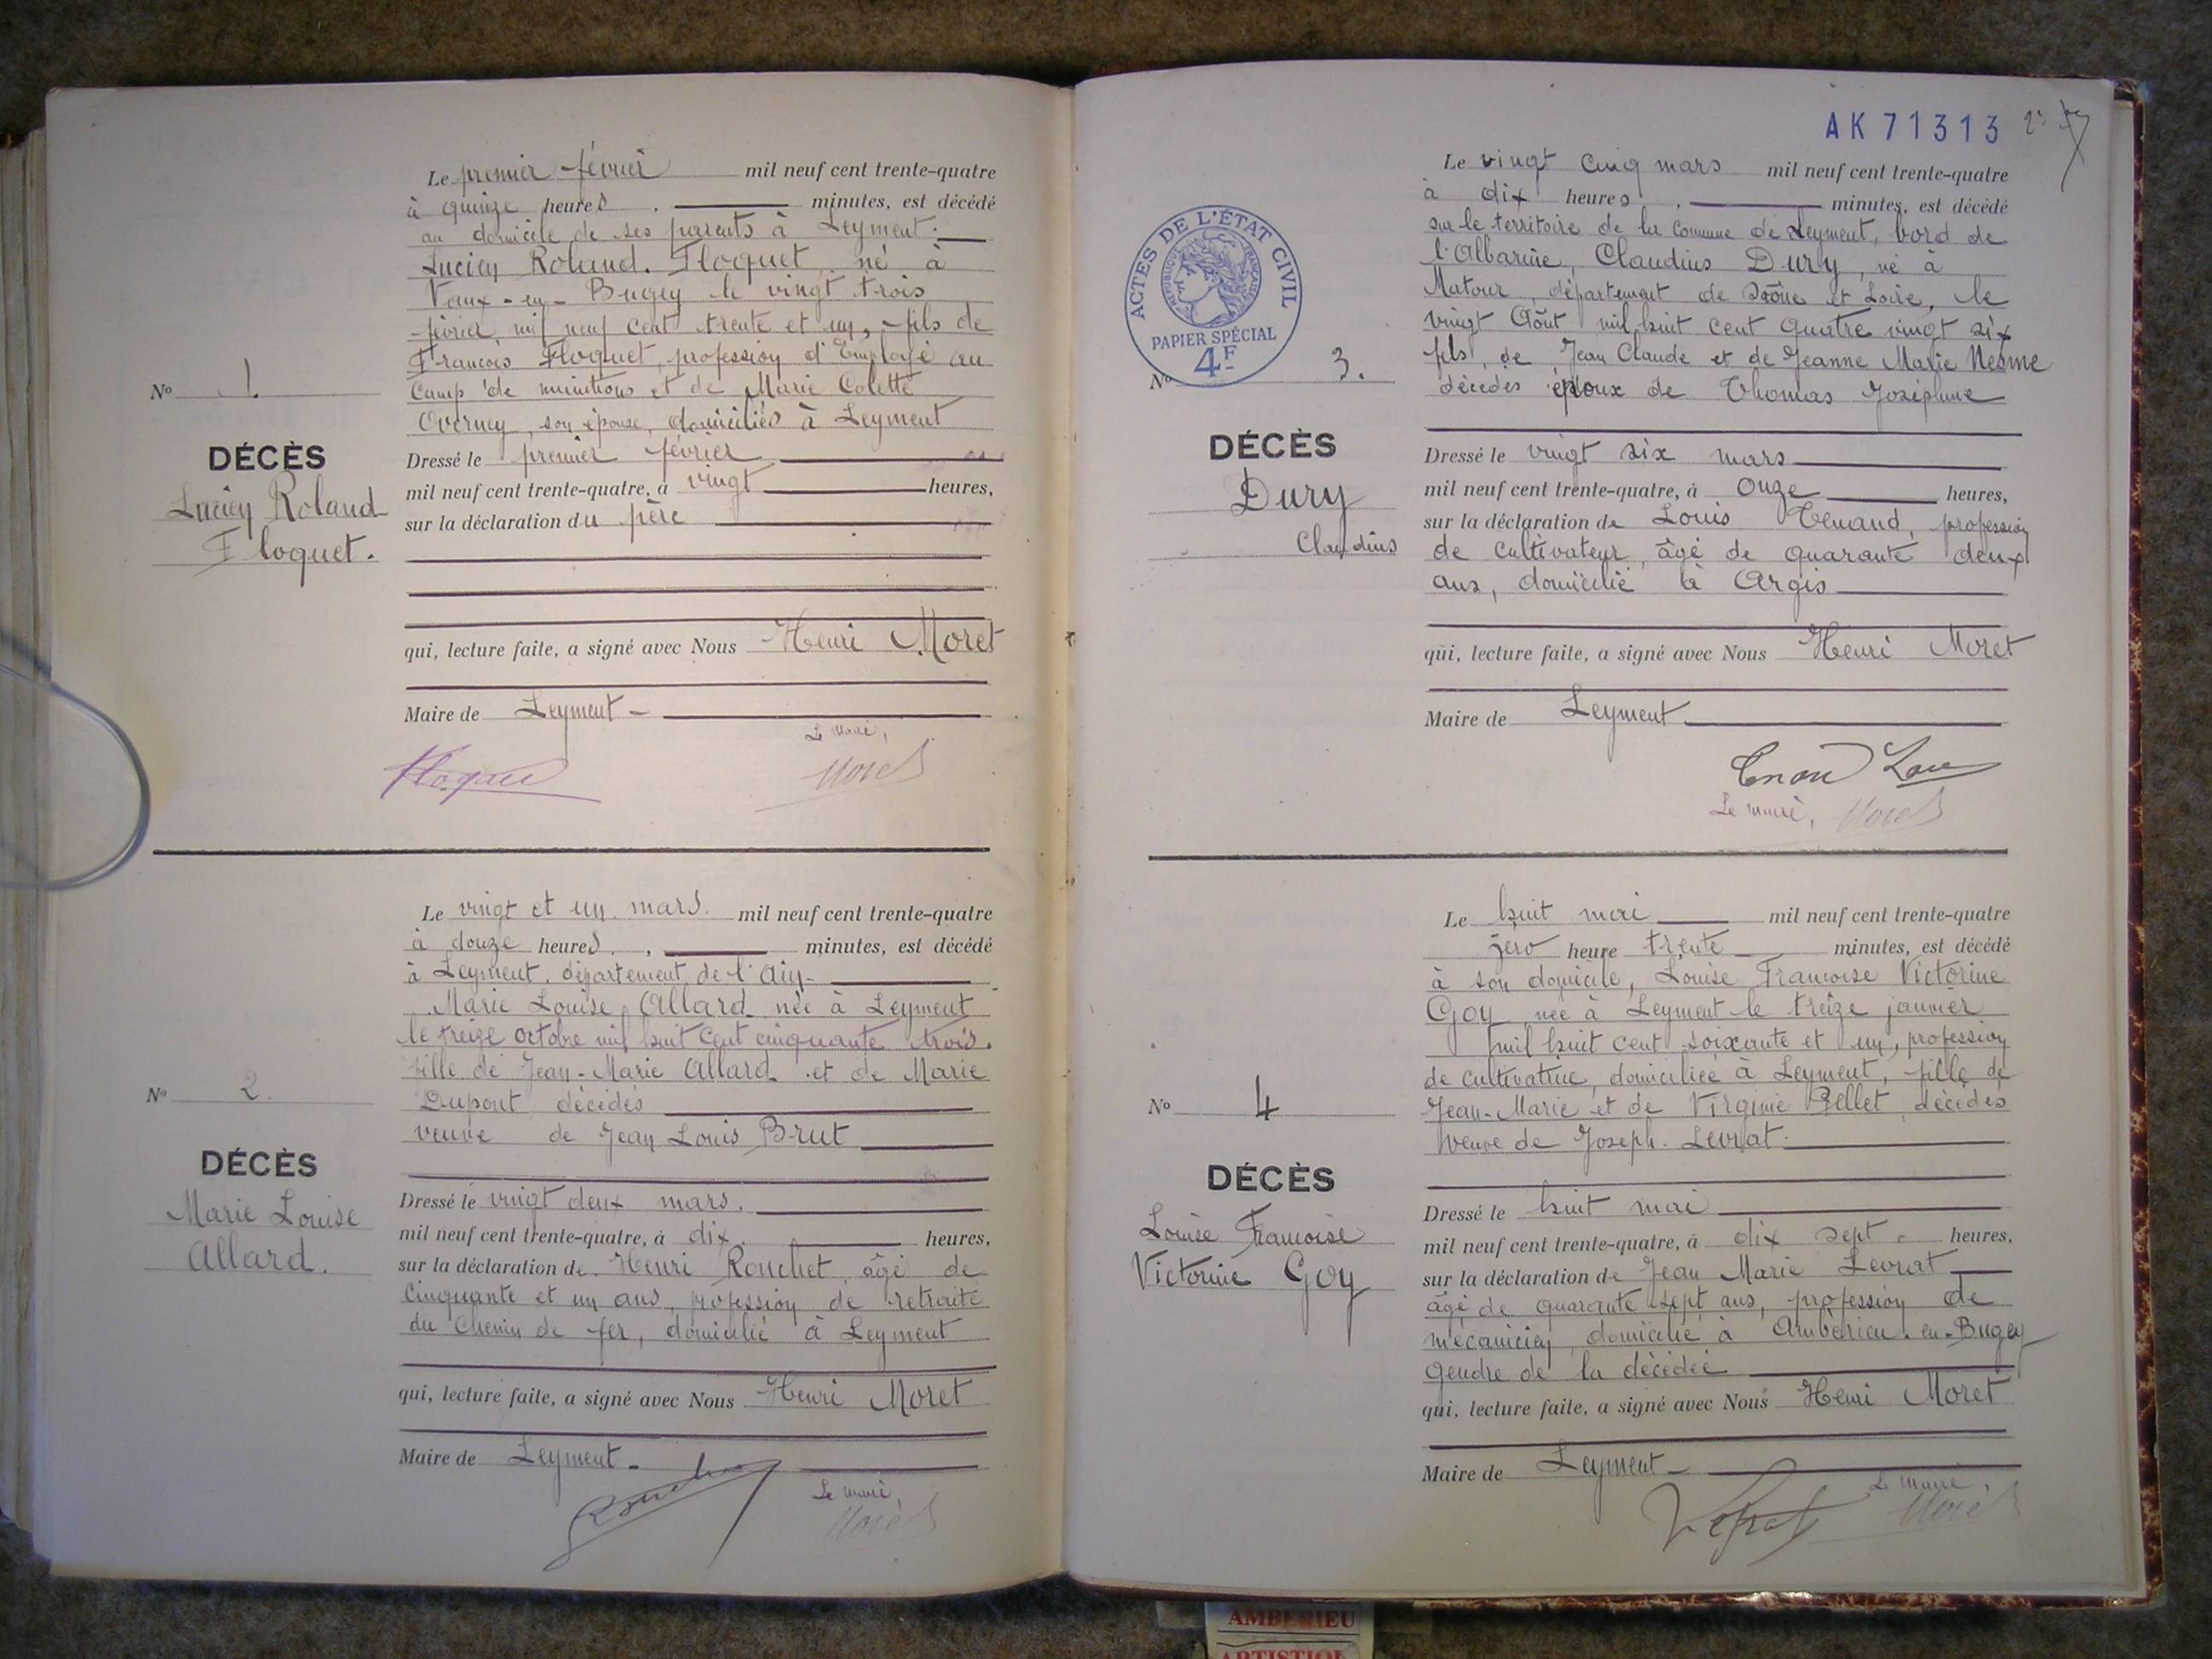 Le premier février mil neuf cent trente-quatre
à quinze heures, minutes, est décédé
au domicile de ses parents à Leyment.
Lucien Roland. Floquet né à
Vaux-en-Bugey le vingt trois
février mil neuf cent trente et un, fils de
Francois Floquet, profession d'Employé au
Camp de munitions et de Marie Colette
Overney, son épouse, domiciliés à Leyment
No 1.
DÉCÈS
Lucien Roland
Floquet.
Dressé le premier février
mil neuf cent trente-quatre, à vingt heures,
sur la déclaration du père
qui, lecture faite, a signé avec Nous Henri Moret
Maire de Leyment
Le maire,
Floquet Moret
Le vingt et un mars mil neuf cent trente-quatre
à douze heures, minutes, est décédé
à Leyment, département de l'Ain
Marie Louise Allard née à Leyment
le treize octobre mil huit cent cinquante trois.
fille de Jean-Marie Allard et de Marie
Dupont décédés
veuve de Jean Louis Brut
No 2.
DÉCÈS
Marie Louise
Allard.
Dressé le vingt deux mars.
mil neuf cent trente-quatre, à dix heures,
sur la déclaration de Henri Rouchet, âgé de
Cinquante et un ans, profession de retraité
du Chemin de fer, domicilié à Leyment
qui, lecture faite, a signé avec Nous Henri Moret
Maire de Leyment
Le maire,
Moret
AK 71313
Le vingt cinq mars mil neuf cent trente-quatre
à dix heures, minutes, est décédé
sur le territoire de la Commune de Leyment, bord de
l'Albarine, Claudius Dury, né à
Matour, département de Saône et Loire, le
vingt Août mil huit cent quatre vingt six
fils de Jean Claude et de Jeanne Marie Nesme
décédés époux de Thomas Joséphine
ACTES DE L'ÉTAT CIVIL
RÉPUBLIQUE FRANÇAISE
PAPIER SPÉCIAL
4F
No 3.
DÉCÈS
Dury
Claudius
Dressé le vingt six mars
mil neuf cent trente-quatre, à onze heures,
sur la déclaration de Louis Tenand, profession
de cultivateur, âgé de quarante deux
ans, domicilié à Argis
qui, lecture faite, a signé avec Nous Henri Moret
Maire de Leyment
Le maire, Moret
Le huit mai mil neuf cent trente-quatre
zero heure trente minutes, est décédé
à son domicile, Louise Francoise Victorine
Goy née à Leyment le treize janvier
mil huit cent soixante et un, profession
de cultivatrice, domiciliée à Leyment, fille de
Jean-Marie et de Virginie Pellet décédés
veuve de Joseph Levrat.
No 4
DÉCÈS
Louise Francoise
Victorine Goy
Dressé le huit mai
mil neuf cent trente-quatre, à dix sept heures,
sur la déclaration de Jean Marie Levrat
âgé de quarante sept ans, profession de
mécanicien domicilié à Ambérieu-en-Bugey
gendre de la décédée
qui, lecture faite, a signé avec Nous Henri Moret
Maire de Leyment
Le maire,
Levrat Moret
AMBERIEU